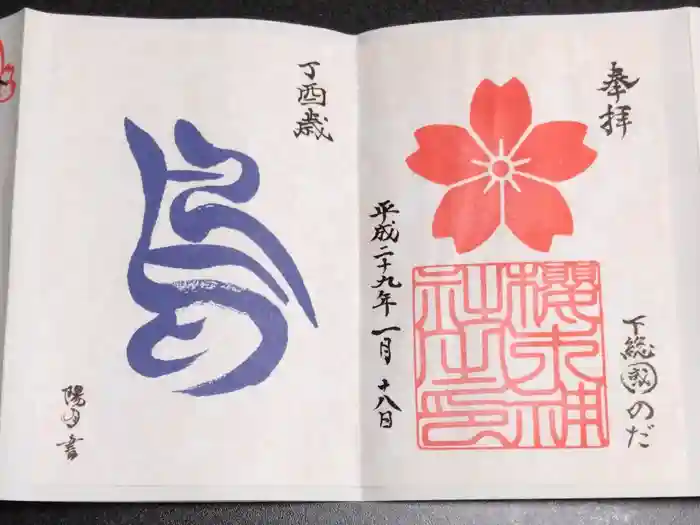 奉拝
下総國のだ
櫻木神
社之印
平成二十九年一月十八日
丁酉歳
陽月書